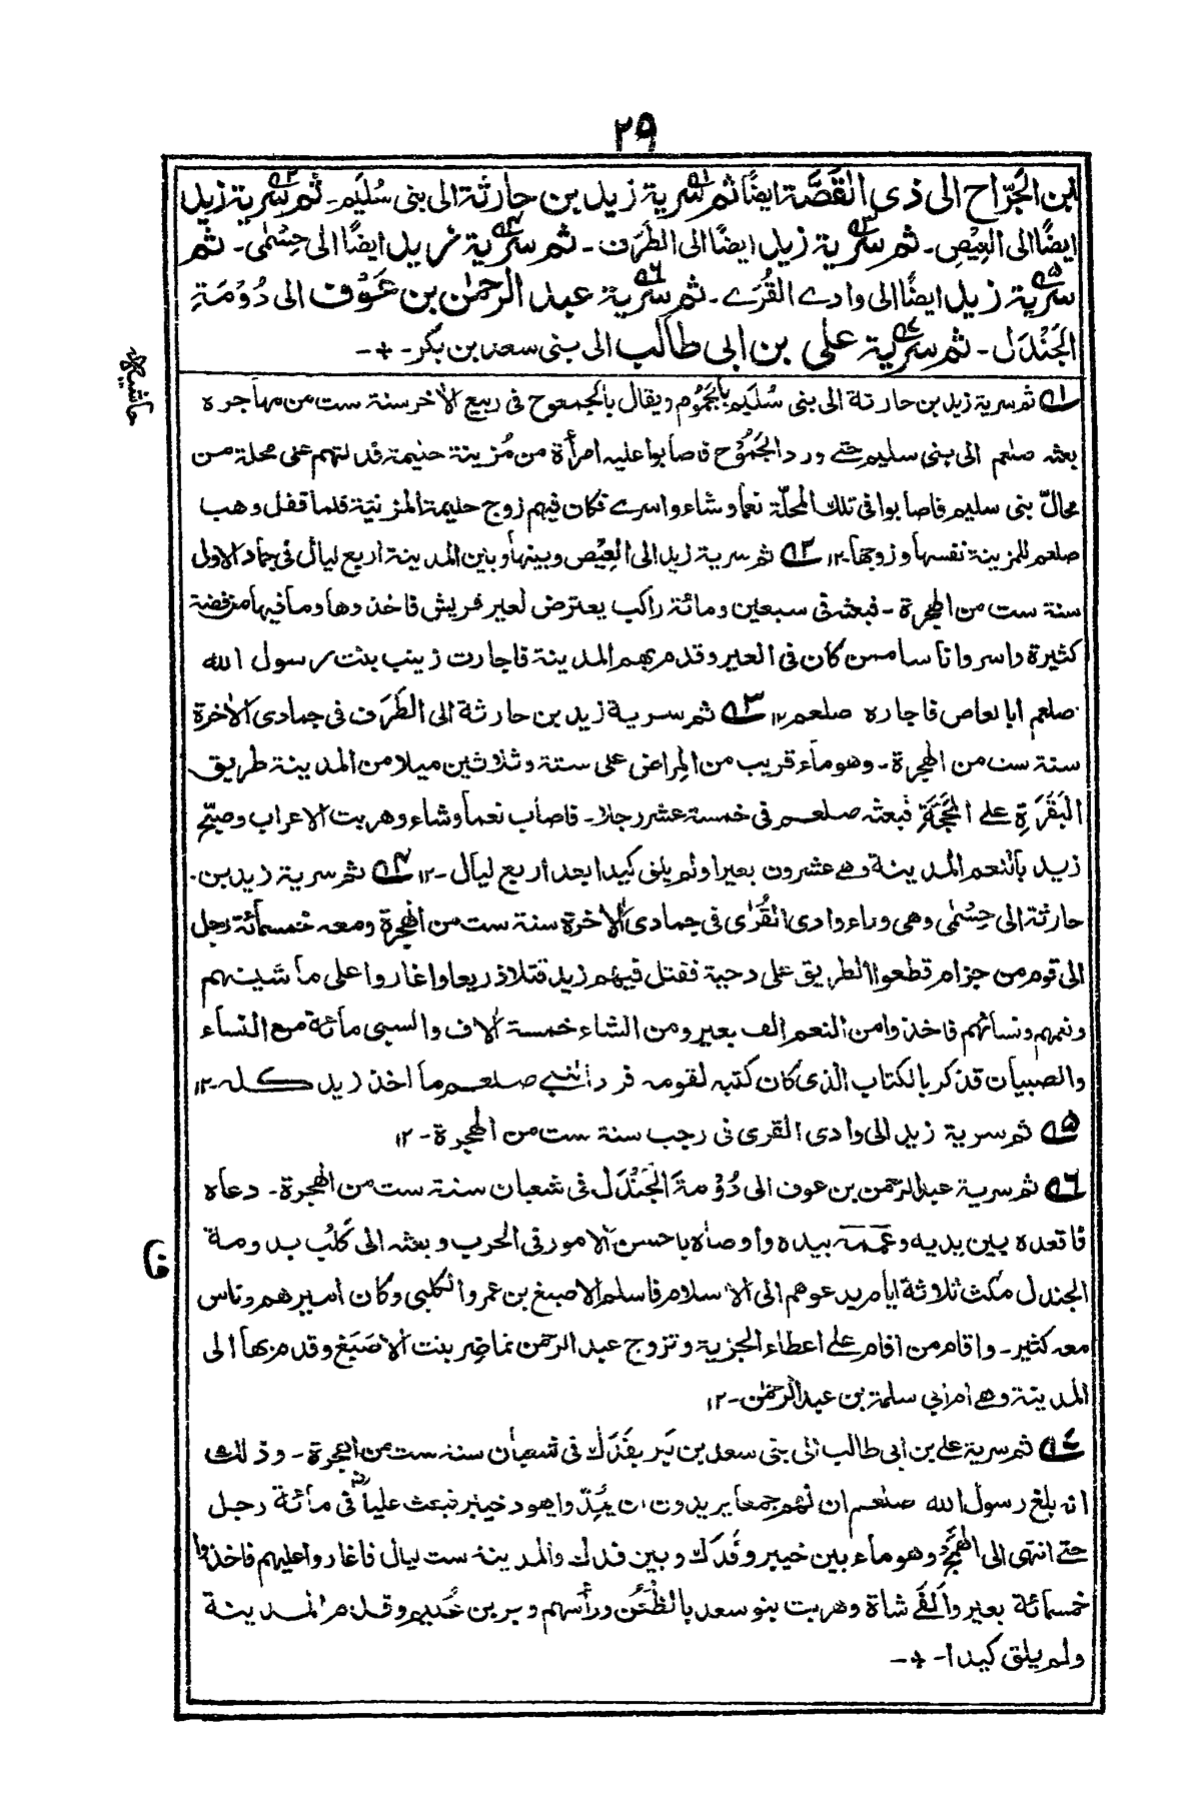 ٢٩
ابن الجَرّاح الى ذى القَصَّة ايضًا ثم سرية زيد بن حارثة الى بنى سُلَيم۔ ثم سرية زيد
ايضًا الى العِيْصِ۔ ثم سرية زيد ايضًا الى الطَرَف۔ ثم سرية زيد ايضًا الى حِسْمٰى۔ ثم
سرية زيد ايضًا الى وادے القُرَے۔ ثم سرية عبد الرحمٰن بن عَوْف الى دُوْمَةِ
الجَنْدَل۔ ثم سرية على بن ابى طالب الى بنى سعد بن بكر۔
حاشيه
١ ثم سرية زيد بن حارثة الى بنى سُلَيم بالجَمُوم ويقال بالجموح فى ربيع الاٰخر سنة ست من مهاجره
بعثه صلعم الى بنى سليم حتے ورد الجَمُوْح فاصابوا عليه امرأة من مُزينة حليمة فدلتهم على محلة من
محالّ بنى سليم فاصابوا فى تلك المحلّة نعما وشاء واسرے فكان فيهم زوج حليمة المزنيّة فلما قفل وهب
صلعم للمزينة نفسها وزوجها۔١٢ ٢ ثم سرية زيد الى العِيْص وبينها وبين المدينة اربع ليال فى جماد الاولى
سنة ست من الهجرة۔ فبعثه فى سبعين ومائة راكب يعترض لعير قريش فاخذوها وما فيها من فضة
كثيرة واسروا ناسا ممن كان فى العير وقدم بهم المدينة فاجارت زينب بنت رسول الله
صلعم ابا لعاص فاجاره صلعم١٢ ٣ ثم سرية زيد بن حارثة الى الطَرَف فى جمادى الاٰخرة
سنة ست من الهجرة۔ وهو ماء قريب من المِراضى على ستة وثلاثين ميلا من المدينة طريق
البَقَرَةِ على المَحَجَّةِ فبعثه صلعم فى خمسة عشر رجلا۔ فاصاب نعما وشاء وهربت الاعراب وصبّح
زيد بالنعم المدينة وهے عشرون بعيرا ولم يلق كيدا بعد اربع ليال۔١٢ ٤ ثم سرية زيد بن
حارثة الى حِسْمٰى وهى وراء وادى القُرٰى فى جمادى الاٰخرة سنة ست من الهجرة ومعه خمسمائة رجل
الى قوم من جزام قطعوا الطريق على دحية فقتل فيهم زيد قتلا ذريعا واغاروا على ماشيتهم
ونعمهم ونسائهم فاخذوا من النعم الف بعير ومن الشاء خمسة اٰلاف والسبى مائة من النساء
والصبيان فذكر بالكتاب الذى كان كتبه لقومه فرد النبى صلعم ما اخذ زيد كله۔١٢
٥ ثم سرية زيد الى وادى القرى فى رجب سنة ست من الهجرة۔١٢
٦ ثم سرية عبد الرحمن بن عوف الى دُوْمة الجَنْدَل فى شعبان سنة ست من الهجرة۔ دعاه
فاقعده بين يديه وعمّمه بيده واوصاه باحسن الامور فى الحرب وبعثه الى كَلْب بدومة
الجندل مكث ثلاثة ايام يدعوهم الى الاسلام فاسلم الاصبغ بن عمرو الكلبى وكان اميرهم وناس
معه كثير۔ واقام من اقام على اعطاء الجزية وتزوج عبد الرحمن تماضر بنت الاَصْبَغ وقدم بها الى
المدينة وهے ام ابى سلمة بن عبد الرحمٰن۔١٢
٧ ثم سرية على بن ابى طالب الى بنى سعد بن بكر بفَدَك فى شعبان سنة ست من الهجرة۔ وذلك
انه بلغ رسول الله صلعم ان لهم جمعا يريدون ان يُمِدّوا يهود خيبر فبعث عليا فى مائة رجل
حتے انتهى الى الهَمَج وهو ماء بين خيبر وفَدَك وبين فدك والمدينة ست ليال فاغاروا عليهم فاخذوا
خمسمائة بعير وألفَے شاة وهربت بنو سعد بالظُعُن ورأسهم وبر بن عُليم وقدم المدينة
ولم يلق كيدا۔
فا